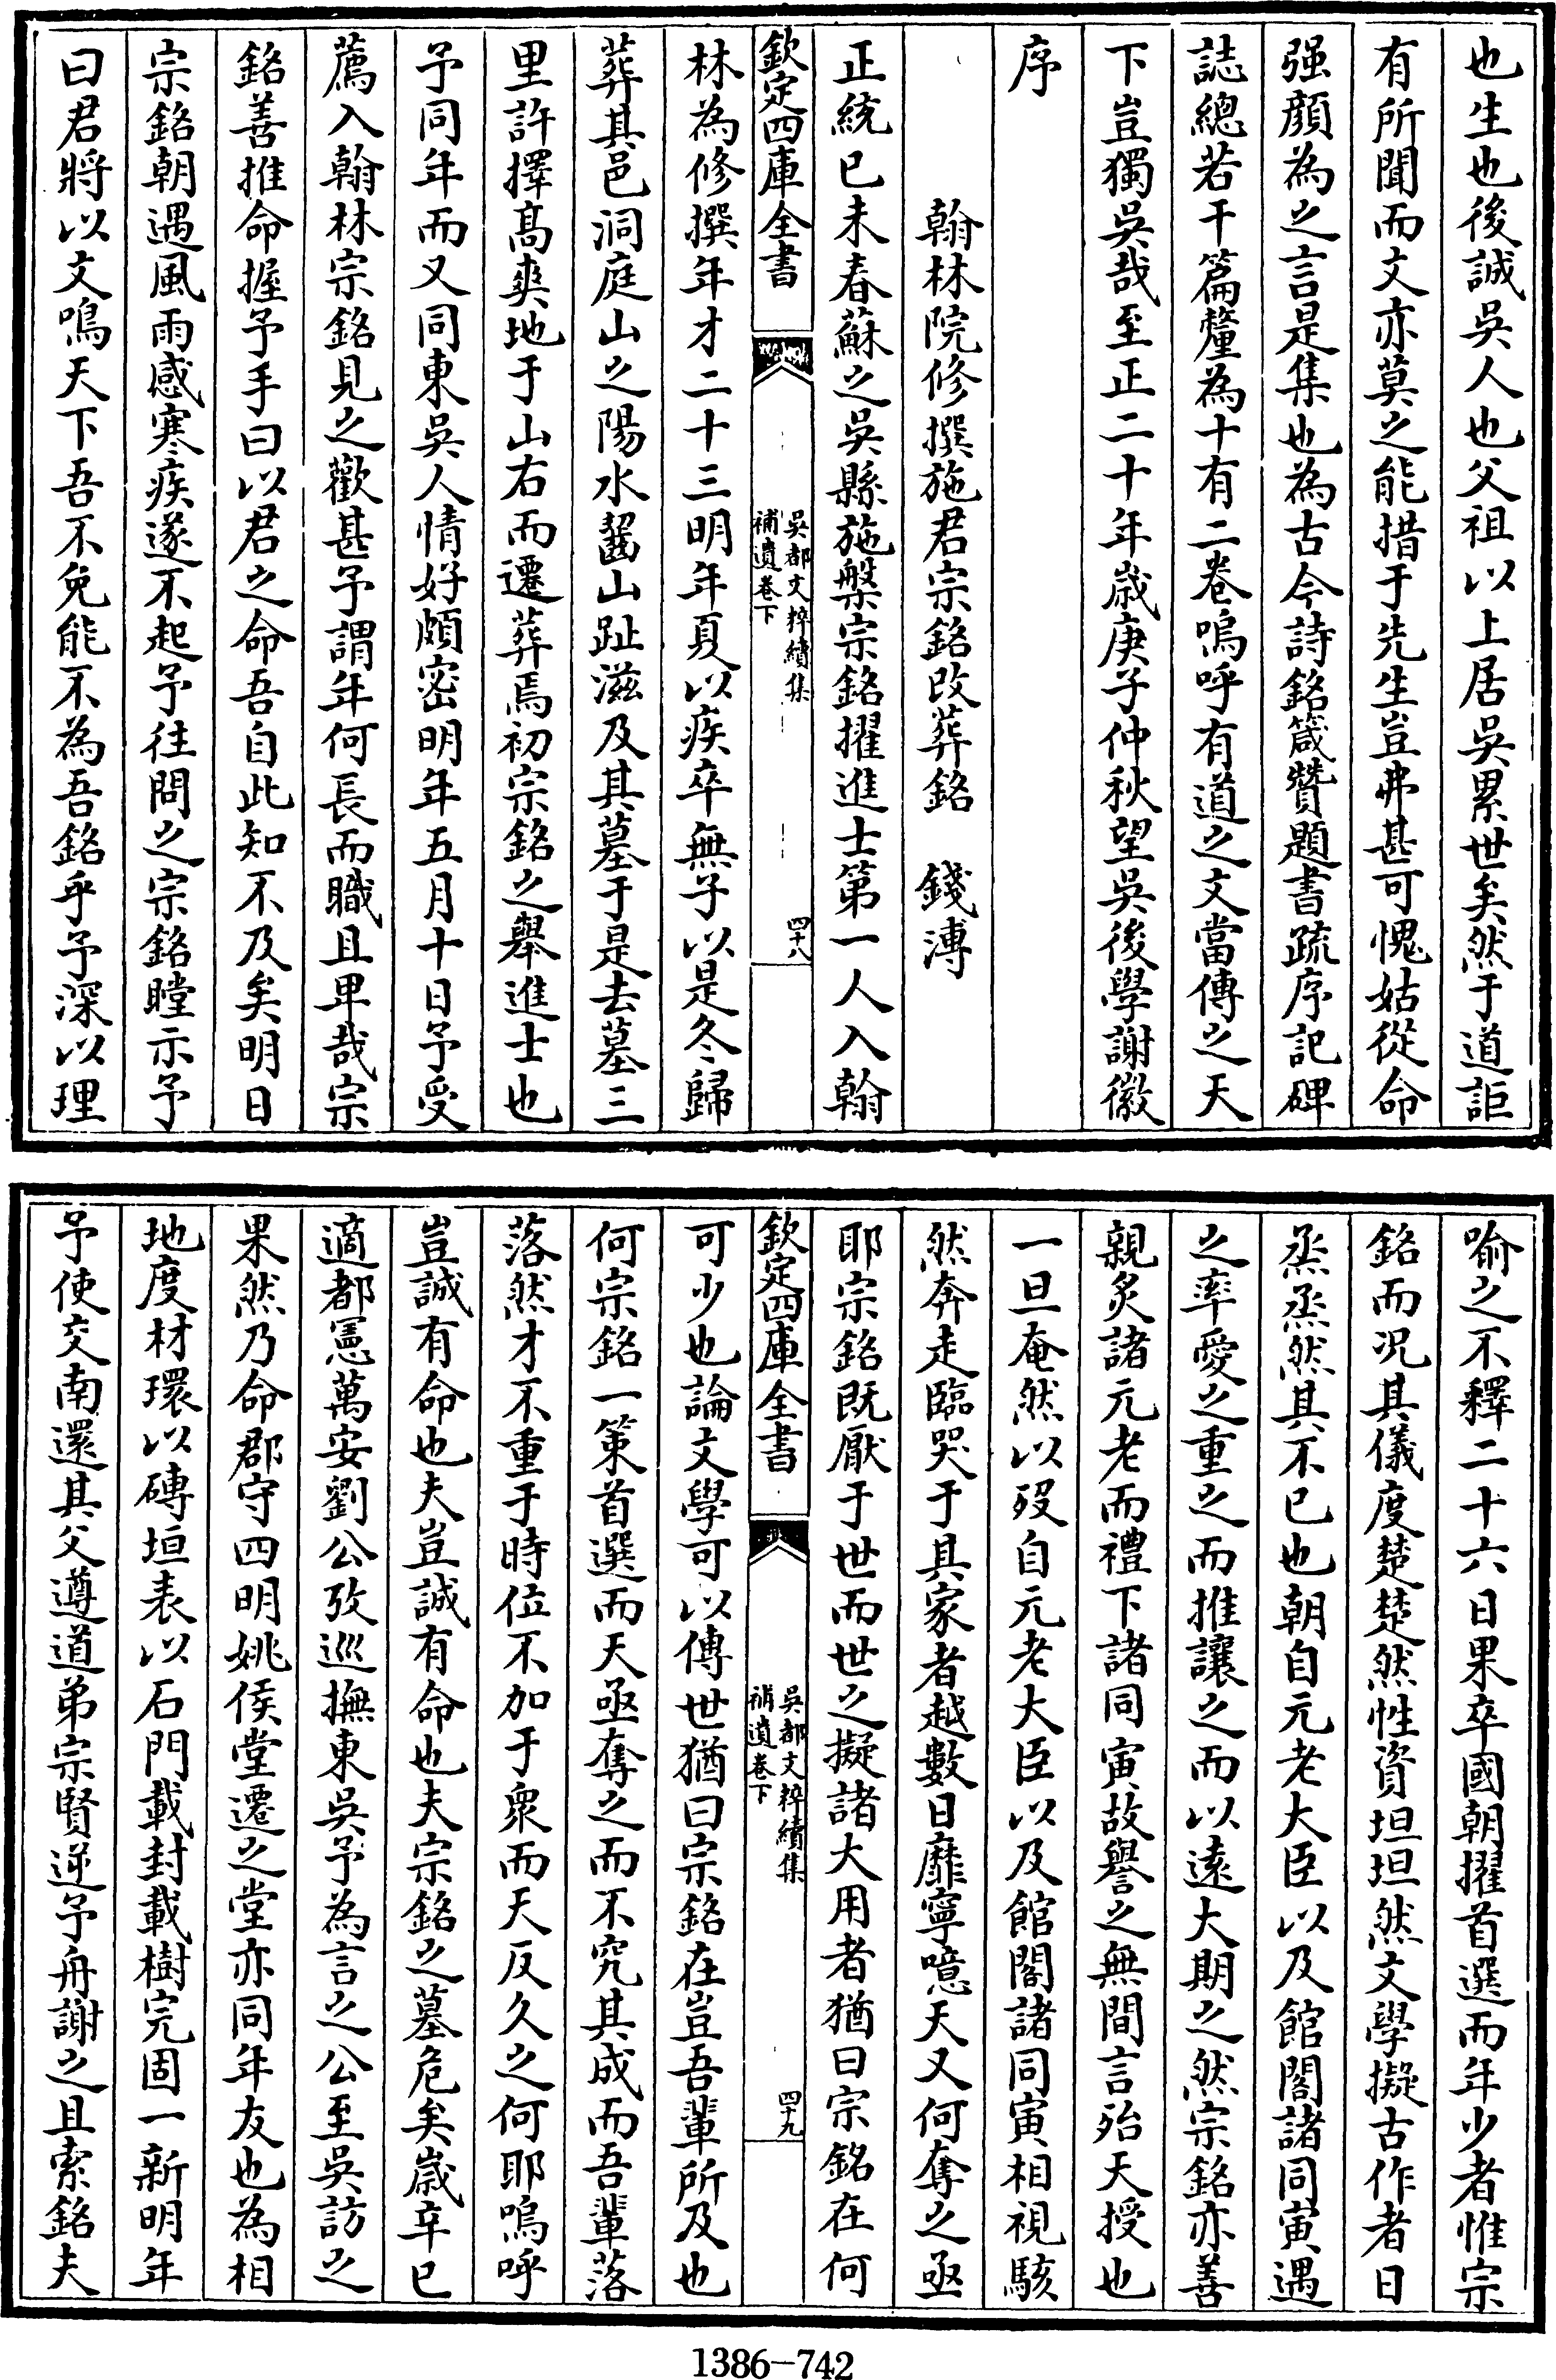 也生也後誠吳人也父祖以上居吳累世矣然于道詎
有所聞而文亦莫之能措于先生豈弗甚可愧姑從命
强顔為之言是集也為古今詩銘箴贊題書疏序記碑
誌總若干篇釐為十有二卷嗚呼有道之文當傳之天
下豈獨吳哉至正二十年歲庚子仲秋望吳後學謝徽
序
翰林院修撰施君宗銘改葬銘　錢溥
正統已未春蘇之吳縣施槃宗銘擢進士第一人入翰
欽定四庫全書
吳都文粹續集
補遺卷下
四十八
林為修撰年才二十三明年夏以疾卒無子以是冬歸
葬其邑洞庭山之陽水齧山趾滋及其墓于是去墓三
里許擇髙爽地于山右而遷葬焉初宗銘之舉進士也
予同年而又同東吳人情好頗密明年五月十日予受
薦入翰林宗銘見之歡甚予謂年何長而職且卑哉宗
銘善推命握予手曰以君之命吾自此知不及矣明日
宗銘朝遇風雨感寒疾遂不起予往問之宗銘瞠示予
曰君將以文鳴天下吾不免能不為吾銘乎予深以理
喻之不釋二十六日果卒國朝擢首選而年少者惟宗
銘而况其儀度楚楚然性資坦坦然文學擬古作者日
烝烝然其不已也朝自元老大臣以及館閣諸同寅遇
之率愛之重之而推讓之而以逺大期之然宗銘亦善
親炙諸元老而禮下諸同寅故譽之無間言殆天授也
一旦奄然以殁自元老大臣以及館閣諸同寅相視駭
然奔走臨哭于其家者越數日靡寧噫天又何奪之亟
耶宗銘既厭于世而世之擬諸大用者猶曰宗銘在何
欽定四庫全書
吳都文粹續集
補遺卷下
四十九
可少也論文學可以傳世猶曰宗銘在豈吾輩所及也
何宗銘一策首選而天亟奪之而不究其成而吾輩落
落然才不重于時位不加于衆而天反久之何耶嗚呼
豈誠有命也夫豈誠有命也夫宗銘之墓危矣歲辛巳
適都憲萬安劉公孜巡撫東吳予為言之公至吳訪之
果然乃命郡守四明姚侯堂遷之堂亦同年友也為相
地度材環以磚垣表以石門載封載樹完固一新明年
予使交南還其父遵道弟宗賢逆予舟謝之且索銘夫
1386-742